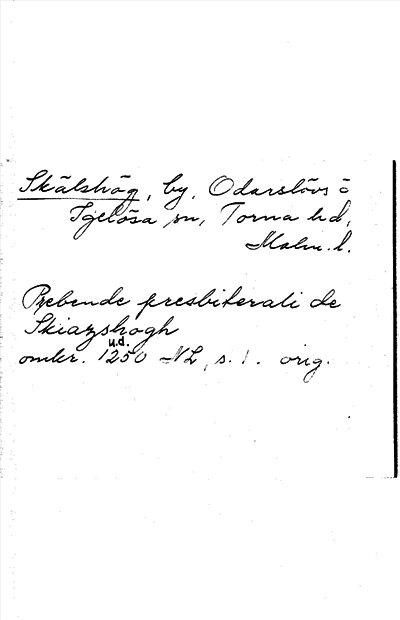 Skälshög, by, Odarslövs o
Igelösa sn, Torna hd,
Malm. l.
Prebende presbiterali de
Skiazshogh
u.d.
omkr. 1250 NL, s. 1. orig.